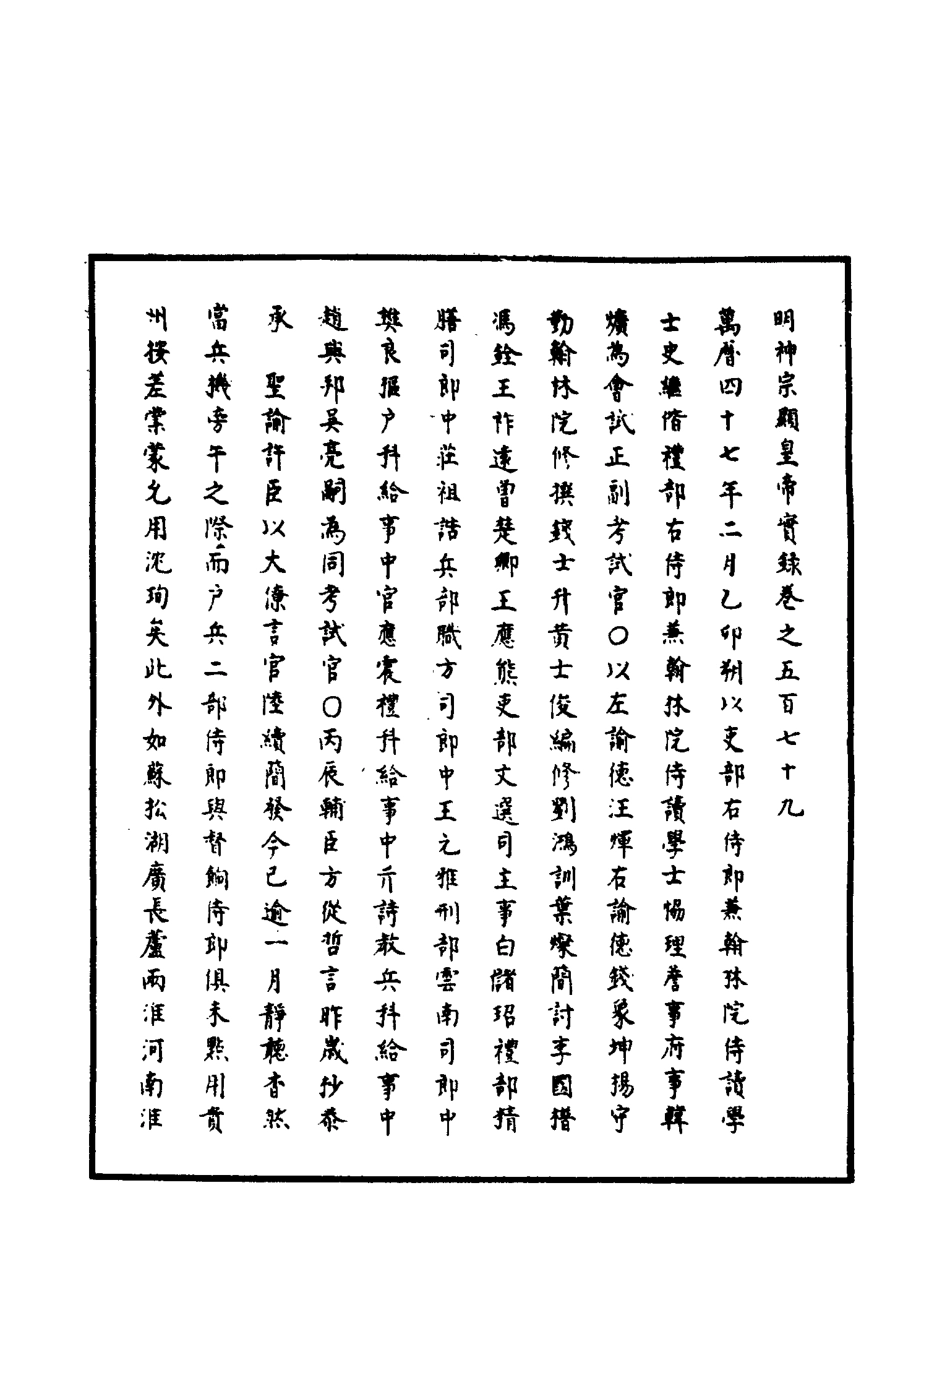 明神宗顯皇帝實録卷之五百七十九
萬曆四十七年二月乙卯朔以吏部右侍郎兼翰林院侍讀學
士史繼偕禮部右侍郎兼翰林院侍讀學士協理詹事府事韓
爌為會試正副考試官○以左諭德汪煇右諭德錢象坤楊守
勤翰林院修撰錢士升黄士俊編修劉鴻訓葉燦簡討李國𣚴
馮銓王祚遠曾楚卿王應熊吏部文選司主事白儲玿禮部精
膳司郎中莊祖誥兵部職方司郎中王元雅刑部雲南司郎中
樊良樞户科給事中官應震禮科給事中亓詩教兵科給事中
趙興邦吴亮嗣為同考試官○丙辰輔臣方從哲言昨歲抄恭
承　聖諭許臣以大僚言官陸續簡發今已逾一月靜聽杳然
當兵機旁午之際而户兵二部侍郎與督餉侍郎俱未點用貴
州按差業蒙允用沈珣矣此外如蘇松湖廣長蘆兩淮河南淮